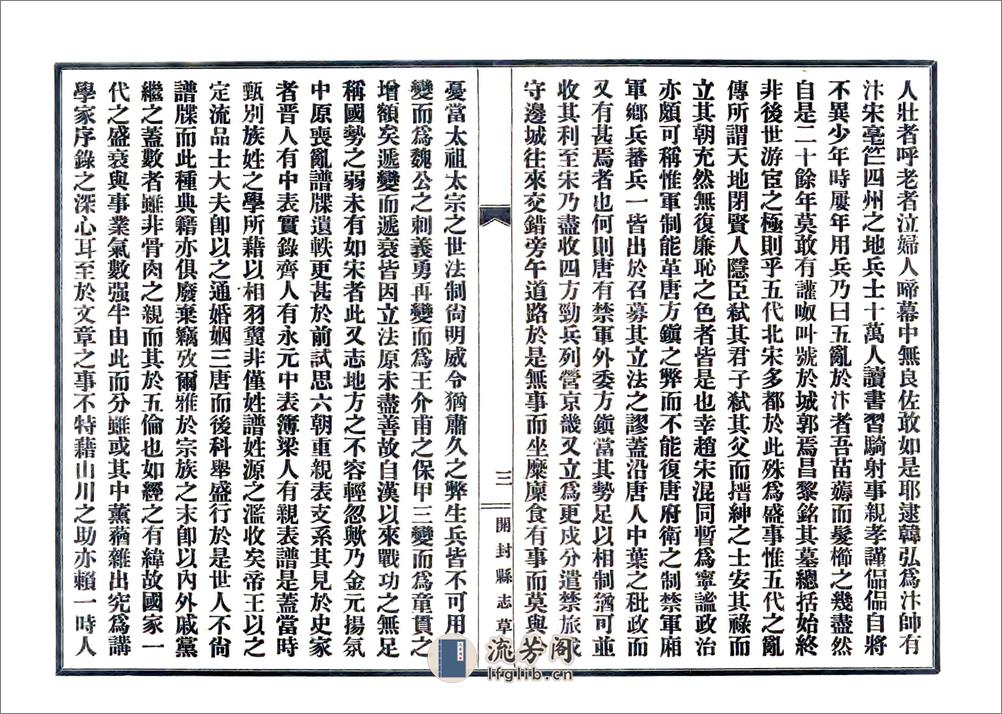 人壯者呼老者泣婦人啼幕中無良佐敢如是耶逮韓弘爲汴帥有
汴宋亳竺四州之地兵士十萬人讀書習騎射事親孝謹偘偘自將
不異少年時屢年用兵乃曰五亂於汴者吾苗薅而髮櫛之幾盡然
自是二十餘年莫敢有讙呶叫號於城郭焉昌黎銘其墓總括始終
非後世游宦之極則乎五代北宋多都於此殊爲盛事惟五代之亂
傳所謂天地閉賢人隱臣弑其君子弑其父而搢紳之士安其祿而
立其朝充然無復廉恥之色者皆是也幸趙宋混同暫爲寧謐政治
亦頗可稱惟軍制能革唐方鎭之弊而不能復唐府衛之制禁軍廂
軍鄉兵蕃兵一皆出於召募其立法之謬蓋沿唐人中葉之秕政而
又有甚焉者也何則唐有禁軍外委方鎭當其勢足以相制猶可並
收其利至宋乃盡收四方勁兵列營京畿又立爲更戍分遣禁旅
守邊城往來交錯旁午道路於是無事而坐糜廩食有事而莫與
三
開封縣志草
憂當太祖太宗之世法制尙明威令猶肅久之弊生兵皆不可用一
變而爲魏公之刺義勇再變而爲王介甫之保甲三變而爲童貫之
增額矣遞變而遞衰皆因立法原未盡善故自漢以來戰功之無足
稱國勢之弱未有如宋者此又志地方之不容輕忽歟乃金元揚氛
中原喪亂譜牒遺軼更甚於前試思六朝重親表支系其見於史家
者晉人有中表實錄齊人有永元中表簿梁人有親表譜是蓋當時
甄別族姓之學所藉以相羽翼非僅姓譜姓源之濫收矣帝王以之
定流品士大夫卽以之通婚姻三唐而後科舉盛行於是世人不尙
譜牒而此種典籍亦俱廢棄竊攷爾雅於宗族之末卽以內外戚黨
繼之蓋數者雖非骨肉之親而其於五倫也如經之有緯故國家一
代之盛衰與事業氣數强半由此而分雖或其中薰蕕雜出究爲講
學家序錄之深心耳至於文章之事不特藉山川之助亦賴一時人
流芳阁
lfglib.cn